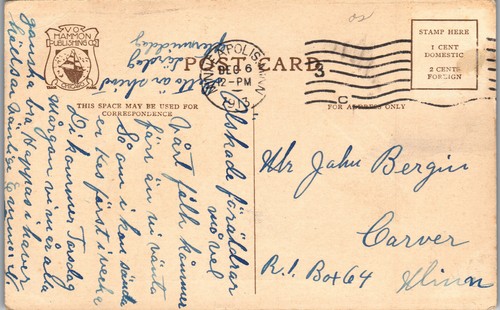 VO
HAMMON
PUBLISHING CO
CHICAGO
POST CARD
STAMP HERE
1 CENT
DOMESTIC
2 CENTS
FOREIGN
MINNEAPOLIS MINN
DEC 6
12-PM
1913
3
C
THIS SPACE MAY BE USED FOR
CORRESPONDENCE
FOR ADDRESS ONLY
Elskade föräldrar
må vel
Vårt fålk kommer
förr än vi vänta
So om i kan sända
er kes först i vecka
Di kommer Torsdag
Morgon vi må alla
ganska bra, Hoppas i haver
hälsan
lördag
Mr John Bergin
Carver
R.1. Box 64 Minn